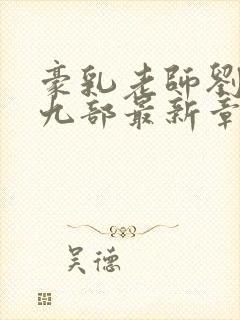 豪乳老師劉
九部最新章
吴德